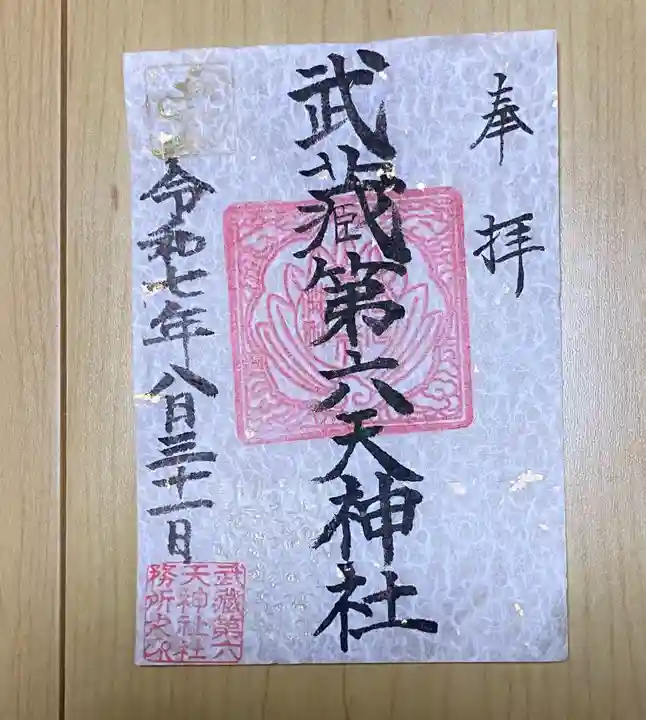 奉拝
武蔵第六天神社
令和七年八月三十一日
武蔵第六
天神社社
務所之印